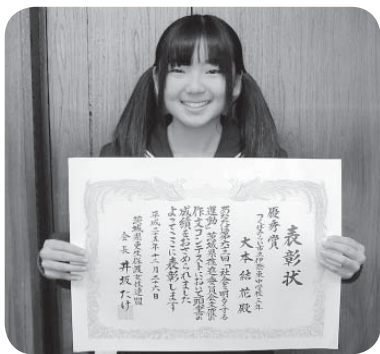 表彰状
優秀賞
つくばみらい市立伊奈東中学校三年
大本結花殿
あなたは第六十三回「社会を明るくする
運動」茨城県推進委員会主催の
作文コンテストにおいて頭書の
成績をおさめられました
よってここに表彰します
平成二十五年十二月二十六日
茨城県更生保護女性連盟
会長 井坂たけ